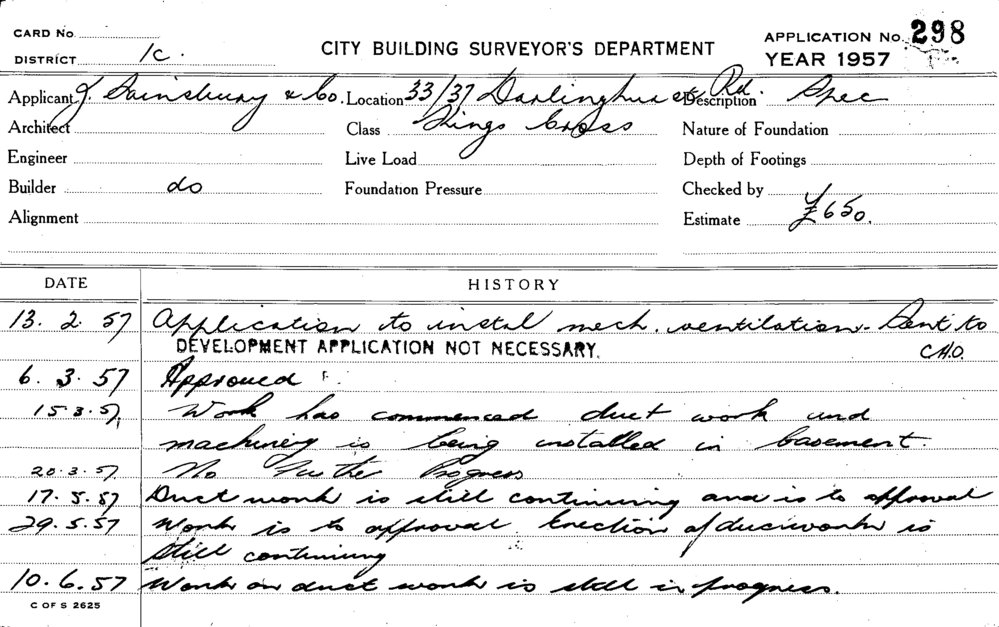 CARD No.
DISTRICT 1c.
CITY BUILDING SURVEYOR'S DEPARTMENT
APPLICATION No. 298
YEAR 1957
Applicant J. Sainsbury & Co. Location 33/37 Darlinghurst Rd. Description Spec
Architect Class Kings Cross Nature of Foundation
Engineer Live Load Depth of Footings
Builder do Foundation Pressure Checked by
Alignment Estimate £650.
DATE HISTORY
13. 2. 57 Application to instal mech. ventilation - Sent to
DEVELOPMENT APPLICATION NOT NECESSARY. C.H.O.
6. 3. 57 Approved
15.3.57 Work has commenced duct work and
machinery is being installed in basement.
20.3.57. No further Progress
17.5.57 Duct work is still continuing and is to approval
29.5.57 Work is to approval Erection of ductwork is
still continuing
10.6.57 Work on duct work is still in progress.
C OF S 2625